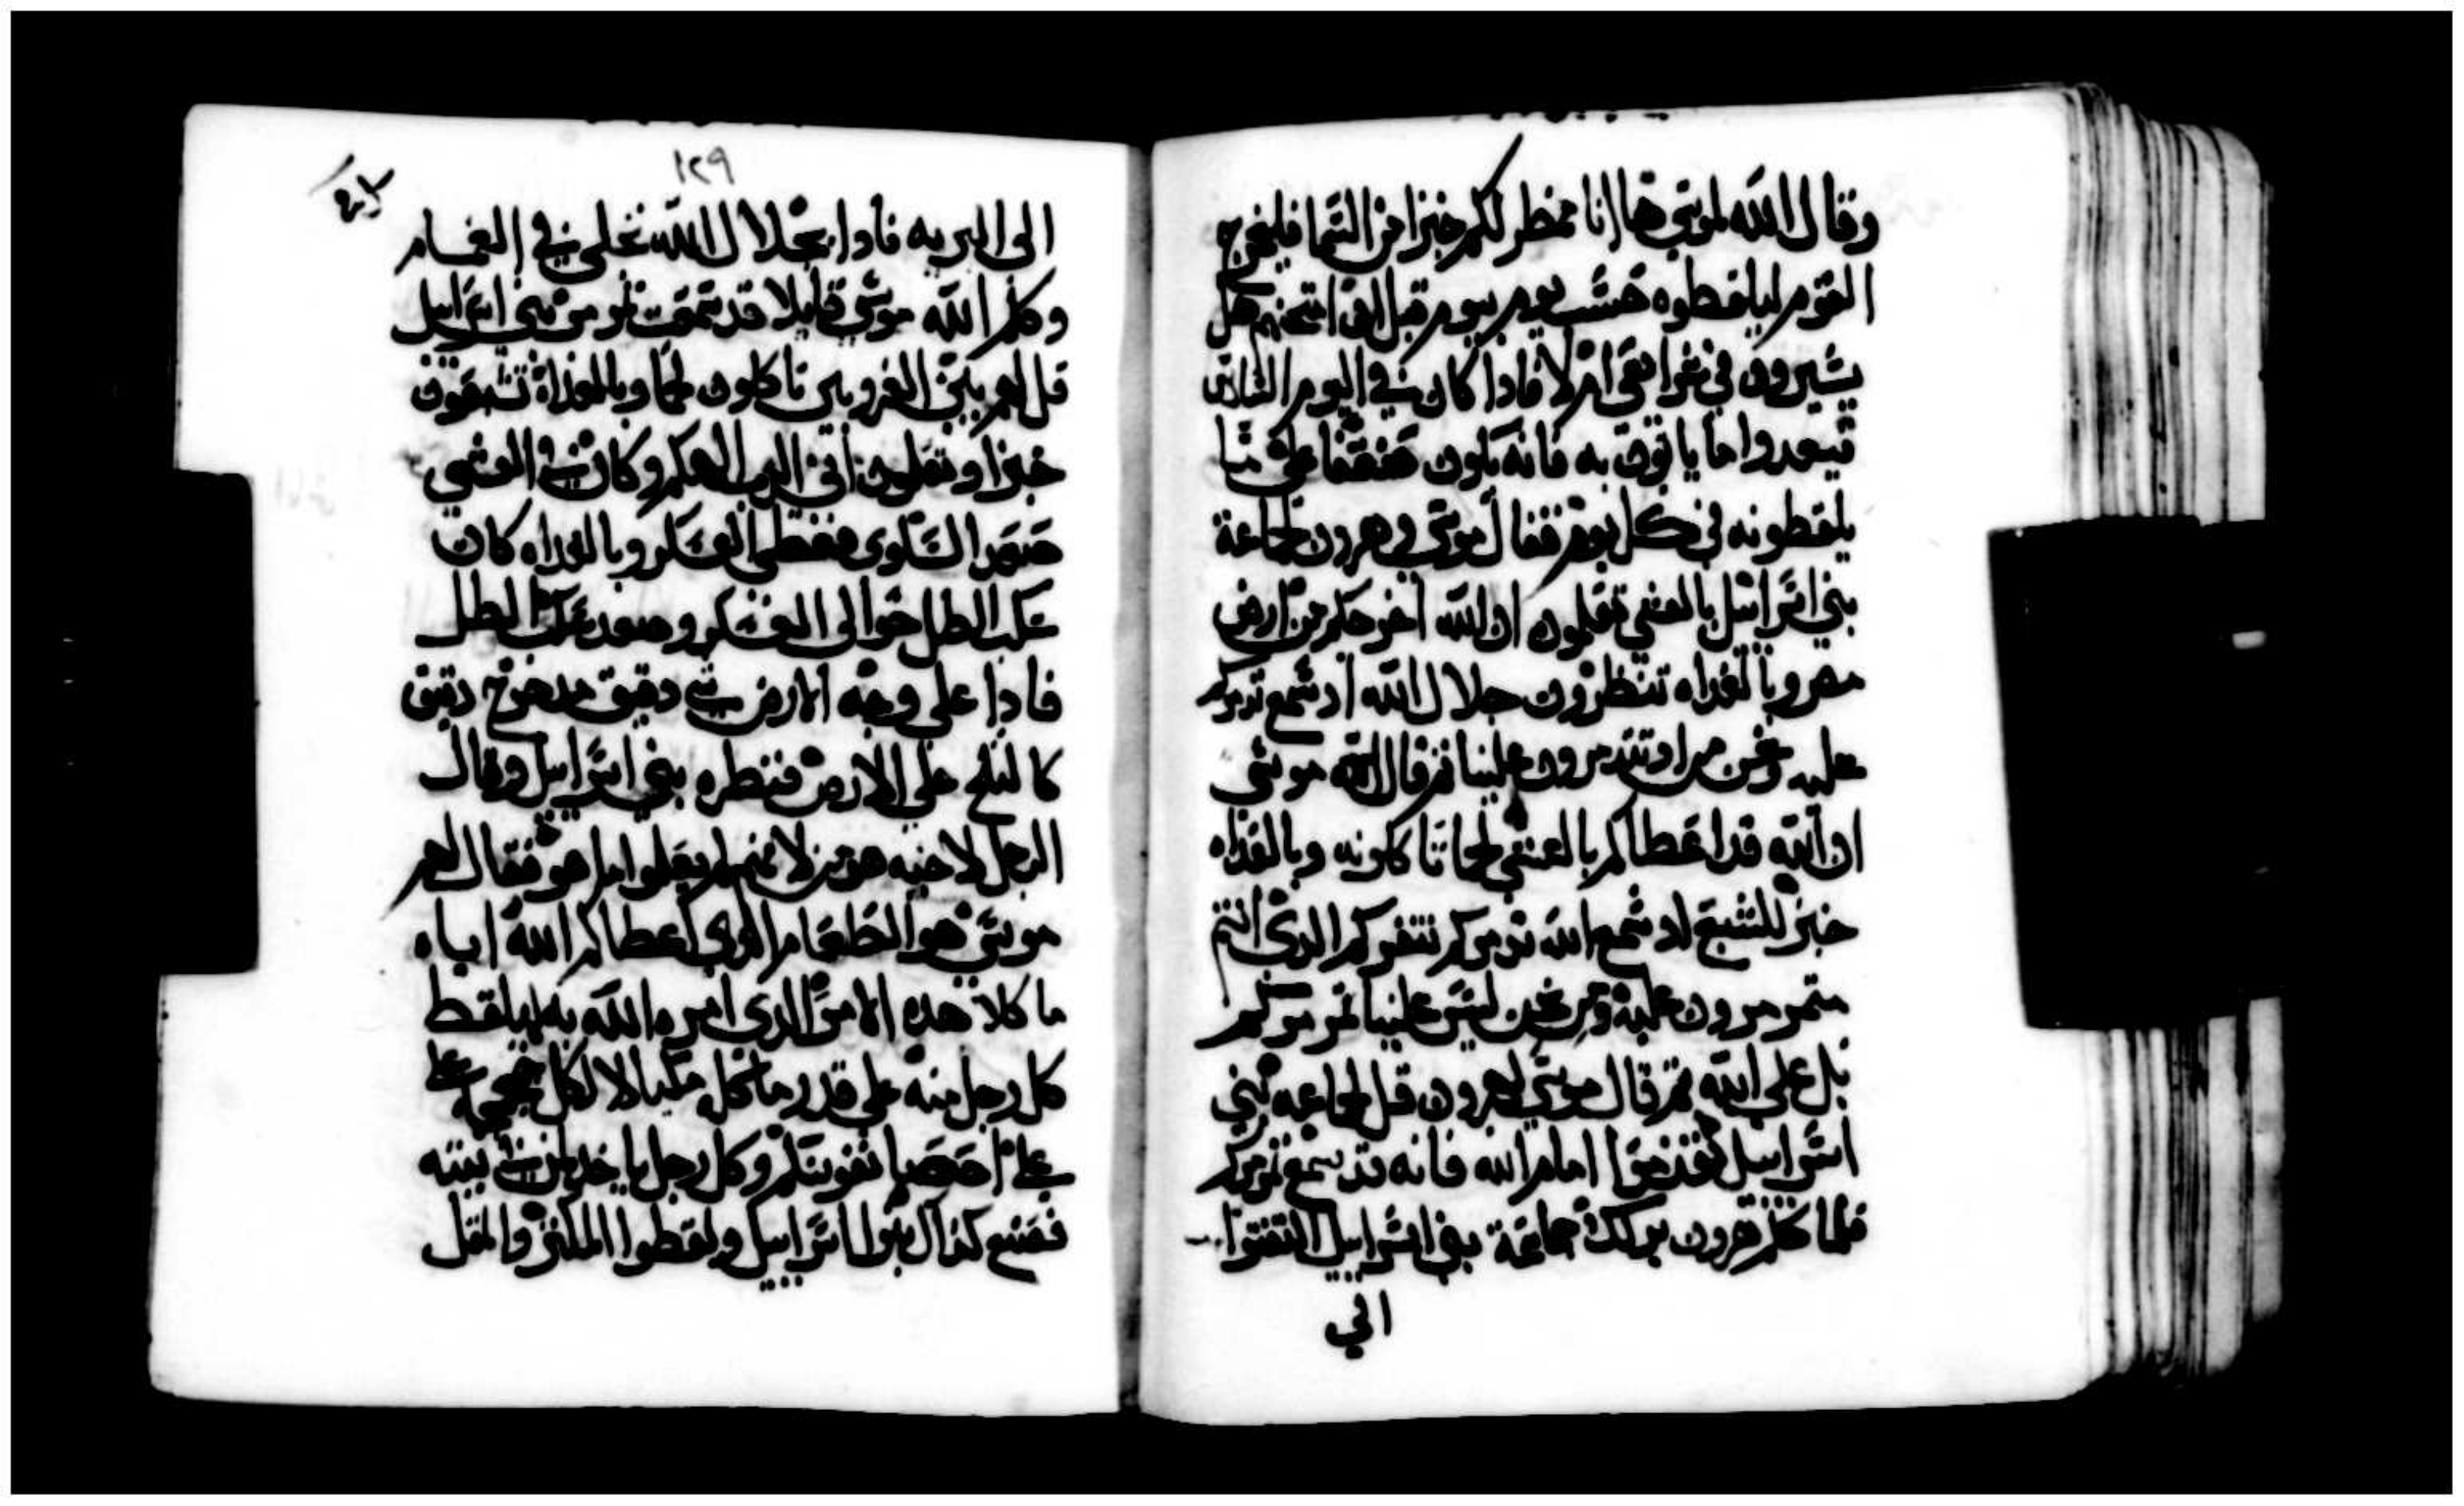 وقال الله لموسي ها انا ممطر لكم خبزا من السما فليخرج
القوم ليلقطوه حسب يوم بيوم قبل اني امتحنهم هل
يسيرون في شرايعي ام لا فادا كان في اليوم السادس
فيعدوا ما ياتون به فانه يكون ضعفا علي ما
يلقطونه في كل يوم فقال موسي و هرون لجماعة
بني اسراييل بالعشي تعلمون ان الله اخرجكم من ارض
مصر وبالغداه تنظرون جلال الله اد سمع تدمركم
عليه ونحن مادا تتدمرون علينا تم قال الله موسي
ان الله قد اعطاكم بالعشي لحما تاكلونه وبالغداه
خبز للشبع اد سمع الله تدمركم تتفوكم الدي انتم
متمرمرون عليه ومن نحن ليس علينا تمرمركم
بل علي الله تم قال موسي لهرون قل لجماعه بني
اسراييل تقدموا امام الله فانه قد سمع تدمركم
فلما كلم هرون بدلك جماعة بني اسراييل التفتوا
الي
١٢٩
الي البريه فادا بجلال الله تجلي في الغمام
وكلم الله موسي قايلا قد سمعت تدمر بني اسراييل
قل لهم بين الغروبين تاكلون لحما وبالغداة تشبعون
خبزا وتعلمون اني الرب الهكم وكان في العشي
صعد السلوي فغطي العسكر وبالغداه كان
سكب الطل حوالي العسكر وصعد سكب الطل
فادا علي وجه الارض شي دقيق مدحرج دقيق
كالتلج علي الارض فنظره بني اسراييل وقال
الرجل لاخيه هو من لانهم لم يعلموا ما هو فقال لهم
موسي هو الطعام الدي اعطاكم الله اياه
ماكلا هده الامر الدي امر الله به ليلقط
كل رجل منه علي قدر ماكله مكيالا لكل جمجمه علي
علي احصا نفوسكم وكل رجل ياخد لمن في بيته
فصنع كدلك بنوا اسراييل ولقطوا المكتر والمقل